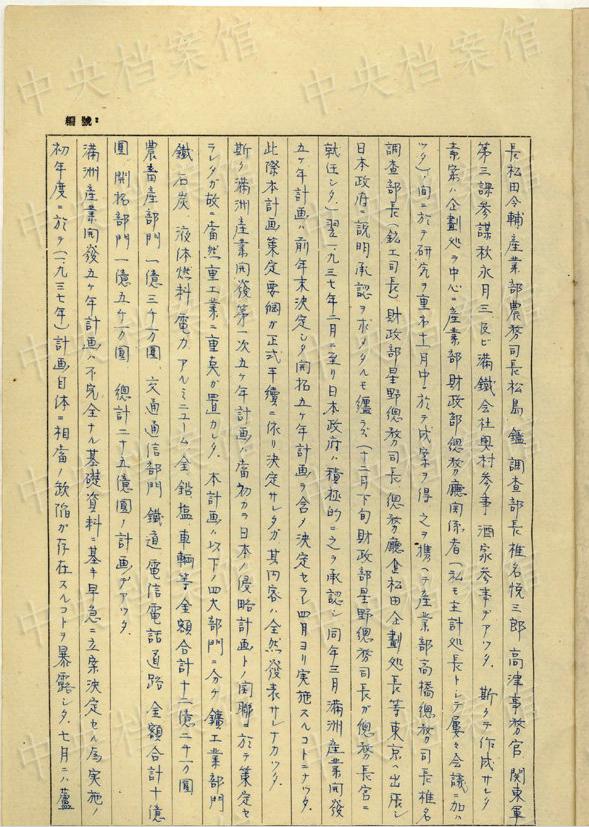 編號:
長松田令輔產業部農務司長松島 鑑 調查部長椎名悦三郎 高津事務官 関東軍
第三課参謀秋永月三 及ビ満鐵会社奥村参事 酒家参事デアツタ. 斯クテ作成サレタ
素案ハ企劃処ヲ中心ニ產業部 財政部 總務廳関係者(私モ主計処長トシテ屢々会議ニ加ハ
ツタ)ノ間ニ於テ研究ヲ重ネ十月中ニ於テ成案ヲ得 之ヲ携ヘテ產業部高橋總務司長椎名
調查部長(鉱工司長)財政部星野總務司長 總務廳企松田企劃処長等東京ヘ出張シ
日本政府ニ説明承認ヲ求メタルモ纏ラズ(十二月下旬財政部星野總務司長ガ總務長官ニ
就任シタ)翌一九三七年二月ニ至リ日本政府ハ積極的ニ之ヲ承認シ 同年三月満洲產業開發
五ケ年計画ハ前年末決定シタ開拓五ケ年計画ヲ含メ決定セラレ四月ヨリ実施スルコトニナツタ.
此際本計画策定要綱ガ正式手續ニ依リ決定サレタガ 其内容ハ全然發表サレナカツタ.
斯ク満洲產業開發第一次五ケ年計画ハ當初カラ日本ノ侵略計画トノ関聯ニ於テ策定セ
ラレタガ故ニ當然重工業ニ重臭ガ置カレタ. 本計画ハ以下ノ四大部門ニ分ケ鑛工業部門
鐵 石炭 液体燃料 電力 アルミニューム 金 鉛 塩 車輌等 金額合計十一億二千万圓
農畜産部門一億三千万圓 交通通信部門 鐵道 電信電話 道路 金額合計十億
圓 開拓部門一億五千万圓 總計二十五億圓ノ計画デアツタ.
満洲產業開發五ケ年計画ハ不完全ナル基礎資料ニ基キ早急ニ立案決定セル為実施ノ
初年度ニ於テ(一九三七年)計画自体ニ相當ノ缺陥ガ存在スルコトヲ暴露シタ. 七月ニハ蘆
中央档案馆
中央档案馆
中央档案馆
中央档案馆
中央档案馆
中央档案馆